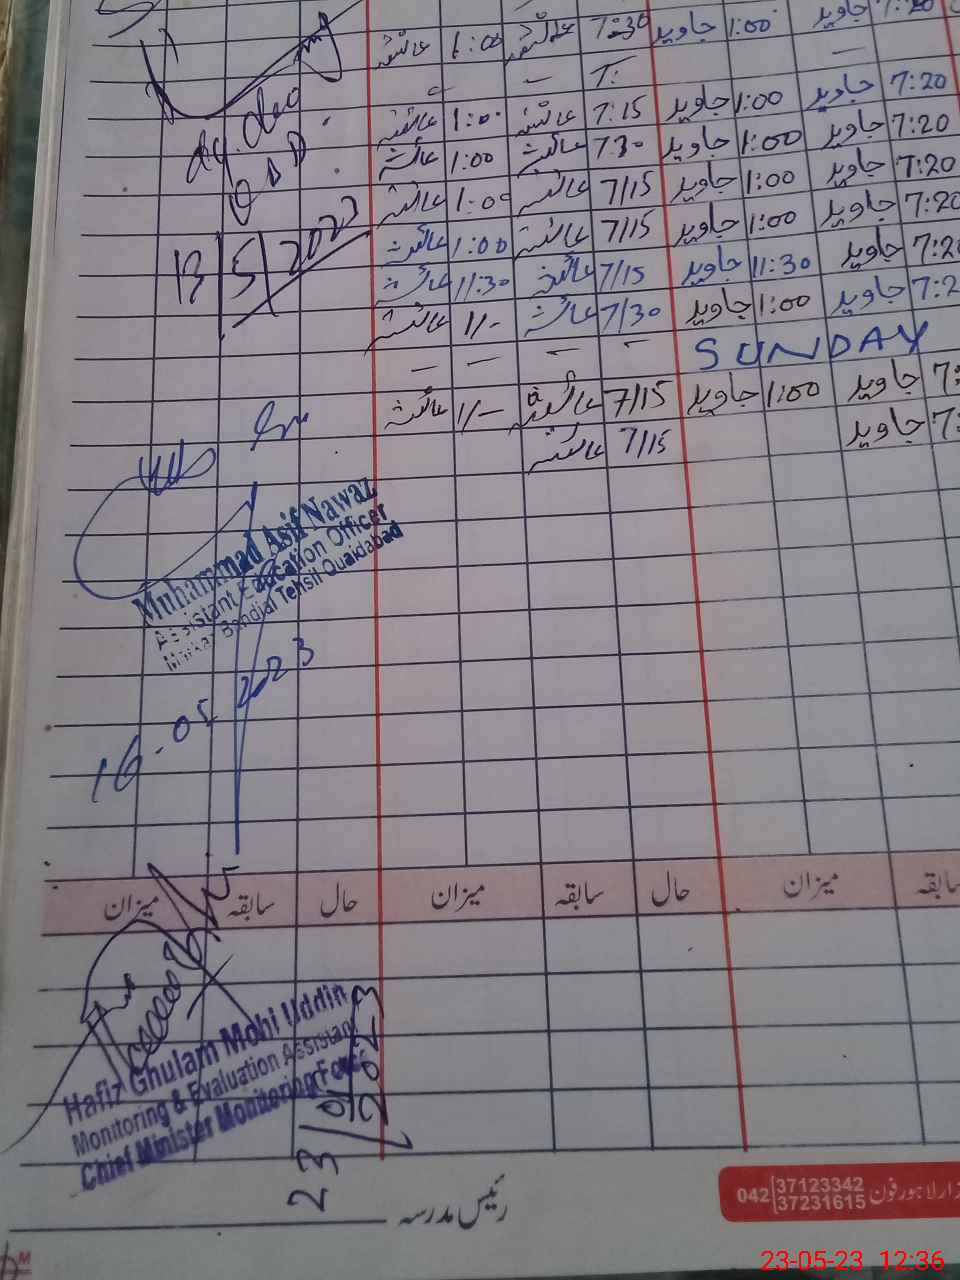 عائشہ 1:00 عائشہ 7:30 جاوید 1:00 جاوید 7:20
عائشہ 1:00 عائشہ 7:15 جاوید 1:00 جاوید 7:20
عائشہ 1:00 عائشہ 7:30 جاوید 1:00 جاوید 7:20
عائشہ 1:00 عائشہ 7/15 جاوید 1:00 جاوید 7:20
عائشہ 1:00 عائشہ 7/15 جاوید 1:00 جاوید 7:20
عائشہ 11:30 عائشہ 7/15 جاوید 11:30 جاوید 7:20
عائشہ 1/- عائشہ 7/30 جاوید 1:00 جاوید 7:2
- - - - SUNDAY
عائشہ 1/- عائشہ 7/15 جاوید 1:00 جاوید 7:
عائشہ 7/15 جاوید 7:
13/5/2023
Muhammad Asif Nawaz
Assistant Education Officer
Markaz Bandial Tehsil Quaidabad
16.05.2023
میزان سابقہ حال میزان سابقہ حال میزان
Hafiz Ghulam Mohi Uddin
Monitoring & Evaluation Assistant
Chief Minister Monitoring Force
23/05/2023
رئیس مدرسہ
لاہور فون 042 37123342
37231615
23-05-23 12:36